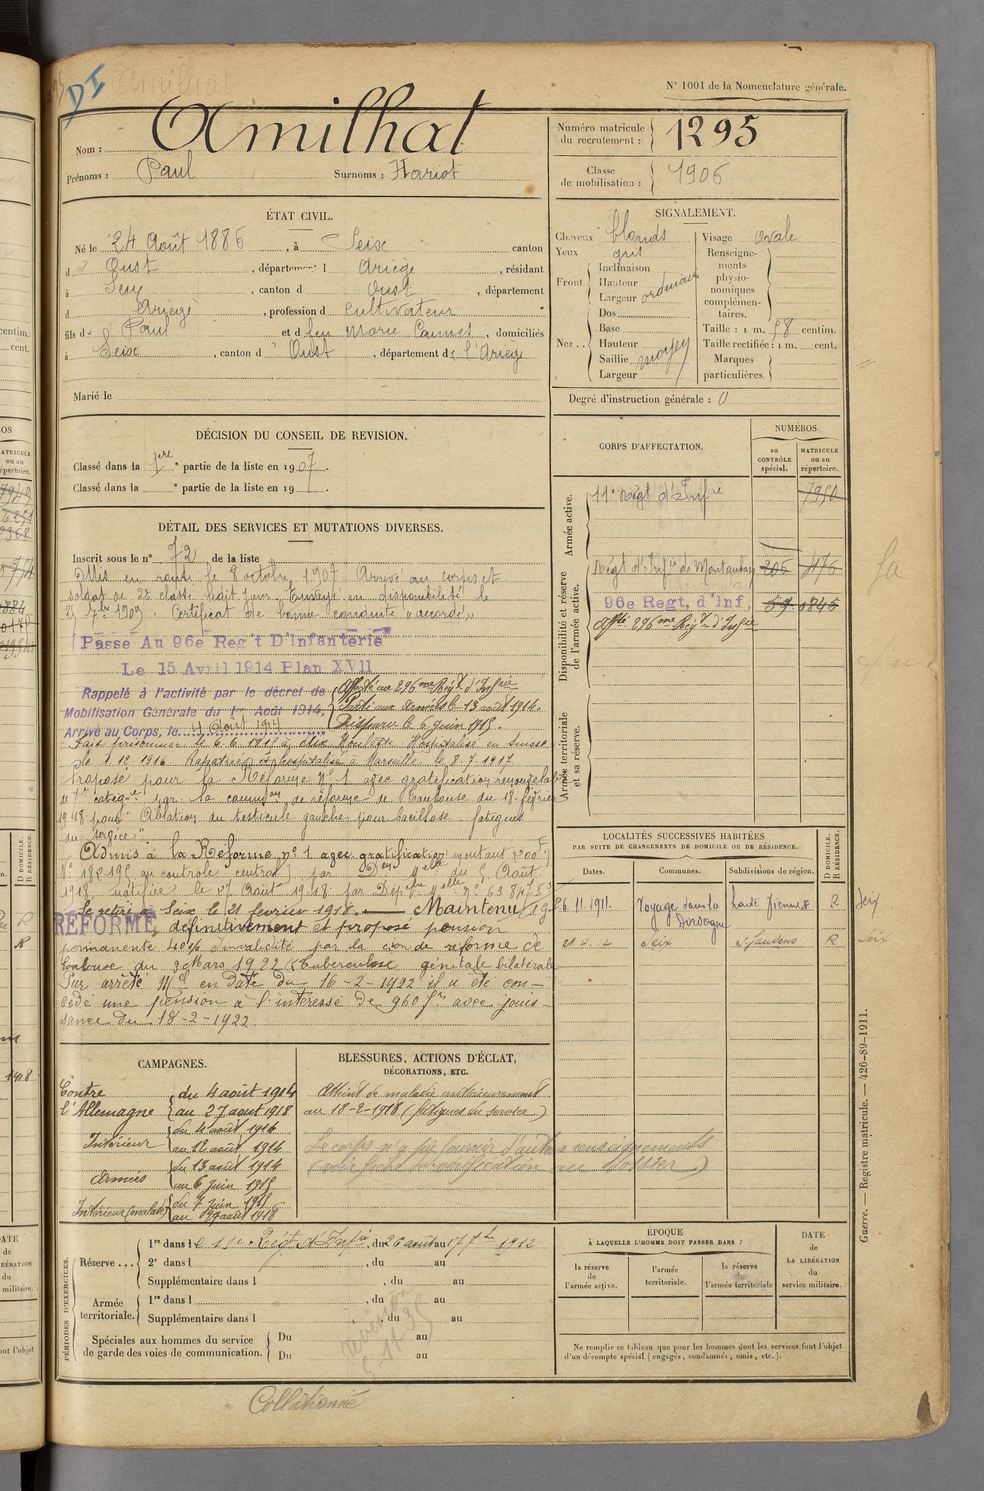 N° 1001 de la Nomenclature générale.
Nom : Amilhat
Prénoms : Paul Surnoms : Hariot
Numéro matricule du recrutement : 1295
Classe de mobilisation : 1906
ÉTAT CIVIL.
Né le 24 Août 1886, à Seix canton
d Oust, département d Ariège, résidant
à Seix, canton d Oust, département
d Ariège, profession d cultivateur
fils d Paul et d feu Marie Caumes, domiciliés
à Seix, canton d Oust, département de l'Ariège
Marié le
SIGNALEMENT.
Cheveux blonds
Yeux gris
Front. Inclinaison
Hauteur
Largeur ordinaire
Nez.. Dos
Base
Hauteur
Saillie moyen
Largeur
Visage ovale
Renseignements physionomiques complémentaires.
Taille : 1 m. 58 centim.
Taille rectifiée : 1 m. cent.
Marques particulières.
Degré d'instruction générale : 0
DÉCISION DU CONSEIL DE REVISION.
Classé dans la 1re partie de la liste en 1907.
Classé dans la e partie de la liste en 19 .
CORPS D'AFFECTATION.
NUMÉROS
au CONTRÔLE spécial.
MATRICULE ou au répertoire.
Armée active.
11e Régt d'Infie 7950
Disponibilité et réserve de l'armée active.
Régt d'Infie de Montauban 206 476
96e Regt, d'Inf, 59 0845
Affté 296me Régt d'Infie
Armée territoriale et sa réserve.
DÉTAIL DES SERVICES ET MUTATIONS DIVERSES.
Inscrit sous le n° 72 de la liste
Mis en route le 8 octobre 1907 Arrivé au corps et
soldat de 2e classe ledit jour. Envoyé en disponibilité le
25 7bre 1909. Certificat de bonne conduite "accordé"
Passe Au 96e Reg't D'Infanterie
Le 15 Avril 1914 Plan XVII
Rappelé à l'activité par le décret de
Mobilisation Générale du 1er Août 1914,
Arrivé au Corps, le 4 Août 1914
Affecté au 296me Régt d'Infie
Parti aux armées le 13 août 1914.
Disparu le 6 juin 1915.
Fait prisonnier le 6.6.1915 à Aix Noulette Hospitalisé en Suisse
le 12 1916 Rapatrié et hospitalisé à Marseille le 8.7.1917
Proposé pour la Réforme N° 1 avec gratification renouvelable
de 7e catégie par la common de réforme de Toulouse du 18 février
1918 pour "Ablation du testicule gauche pour bacillose - fatigues
du service"
Admis à la Réforme n° 1 avec gratification montant (200f)
N° 182195 au contrôle central) par Don Mlle du 5 Août
1918, notifiée le 27 Août 1918
Se retire Seix le 21 février 1918. Maintenu
REFORMÉ définitivement et proposé pension
permanente 40% d'invalidité par la con de réforme de
Toulouse du 3 Mars 1922 (Tuberculose génitale bilatérale
Par arrêté Mel en date du 16-2-1922 il a été con-
cédé une pension à l'intéressé de 960 frs avec jouis-
sance du 18-2-1922.
LOCALITÉS SUCCESSIVES HABITÉES
PAR SUITE DE CHANGEMENTS DE DOMICILE OU DE RÉSIDENCE.
Dates. Communes. Subdivisions de région. D DOMICILE. R RÉSIDENCE.
26.11.1911. Voyage dans la Dordogne haute Vienne R Seix
21.4.12 Seix St Gaudens R Seix
CAMPAGNES.
Contre l'Allemagne du 4 août 1914
au 27 août 1918
Intérieur du 4 août 1914
au 12 août 1914
Armées du 13 août 1914
au 6 juin 1915
Intérieur (malade) du 7 juin 1915
au 27 août 1918
BLESSURES, ACTIONS D'ÉCLAT,
DÉCORATIONS, ETC.
Atteint de maladie antérieurement
au 18-2-1918 (fatigues du service)
Le corps n'a pu fournir d'autres renseignements
(voir fiche de vérification au dossier)
PÉRIODES D'EXERCICES.
Réserve... 1re dans le 11e Régt d'Infie, du 26 août au 17 7bre 1912
2e dans l , du au
Supplémentaire dans l , du au
Armée territoriale. 1re dans l , du au
Supplémentaire dans l , du au
Spéciales aux hommes du service de garde des voies de communication. Du au
Du au
ÉPOQUE
À LAQUELLE L'HOMME DOIT PASSER DANS :
la réserve de l'armée active.
l'armée territoriale.
la réserve de l'armée territoriale
DATE de LA LIBÉRATION du service militaire.
Ne remplir ce tableau que pour les hommes dont les services font l'objet
d'un décompte spécial (engagés, condamnés, omis, etc.).
Guerre. — Registre matricule. — 426-89-1911.
Collationné